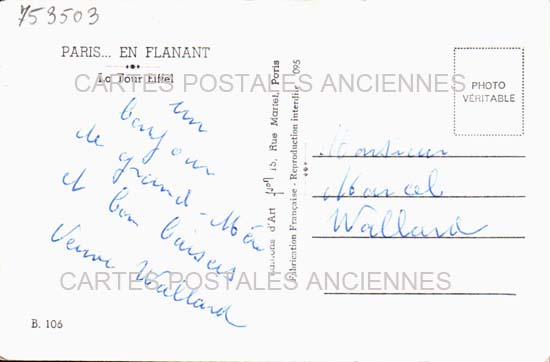 753503
PARIS... EN FLANANT
La Tour Eiffel
un
bonjour
de grand-Mère
et bon baisers
Veuve Wallard
B. 106
Editions d'Art 15, Rue Martel, Paris
Fabrication Française - Reproduction interdite 095
PHOTO
VÉRITABLE
Monsieur
Marcel
Wallard
CARTES POSTALES ANCIENNES
CARTES POSTALES ANCIENNES